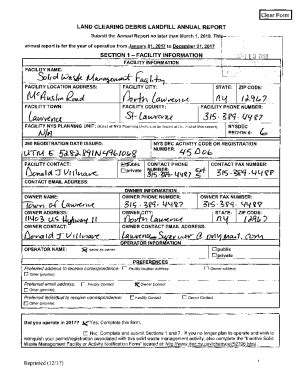 Clear Form
LAND CLEARING DEBRIS LANDFILL ANNUAL REPORT
Submit the Annual Report no later than March 1, 2018. This
annual report is for the year of operation from January 01, 2017 to December 31, 2017
SECTION 1 – FACILITY INFORMATION
FACILITY INFORMATION
FACILITY NAME:
Solid Waste Management Facility
FACILITY LOCATION ADDRESS: FACILITY CITY: STATE: ZIP CODE:
McAuslin Road North Lawrence NY 12967
FACILITY TOWN: FACILITY COUNTY: FACILITY PHONE NUMBER:
Lawrence St-Lawrence 315-389-4487
FACILITY NYS PLANNING UNIT: NYSDEC
N/A REGION #: 6
360 REGISTRATION DATE ISSUED: NYS DEC ACTIVITY CODE OR REGISTRATION
NUMBER:
45D06
FACILITY CONTACT: public CONTACT PHONE CONTACT FAX NUMBER:
Donald J Villnave private NUMBER: 315-389-4487 315-389-4488
CONTACT EMAIL ADDRESS:
OWNER INFORMATION
OWNER NAME: OWNER PHONE NUMBER: OWNER FAX NUMBER:
Town of Lawrence 315-389-4487 315-389-4488
OWNER ADDRESS: OWNER CITY: STATE: ZIP CODE:
11403 US Highway 11 North Lawrence NY 12967
OWNER CONTACT: OWNER CONTACT EMAIL ADDRESS:
Donald J Villnave
OPERATOR INFORMATION
OPERATOR NAME: same as owner public
private
PREFERENCES
Preferred address to receive correspondence: Facility location address Owner address
Other (provide):
Preferred email address: Facility Contact Owner Contact
Other (provide):
Preferred individual to receive correspondence: Facility Contact Owner Contact
Other (provide):
Did you operate in 2017? Yes; Complete this form.
No; Complete and submit Sections 1 and 7. If you no longer plan to operate and wish to
relinquish your permit/registration associated with this solid waste management activity, also complete the "Inactive Solid
Waste Management Facility or Activity Notification Form" located at:
Reprinted (12/17)